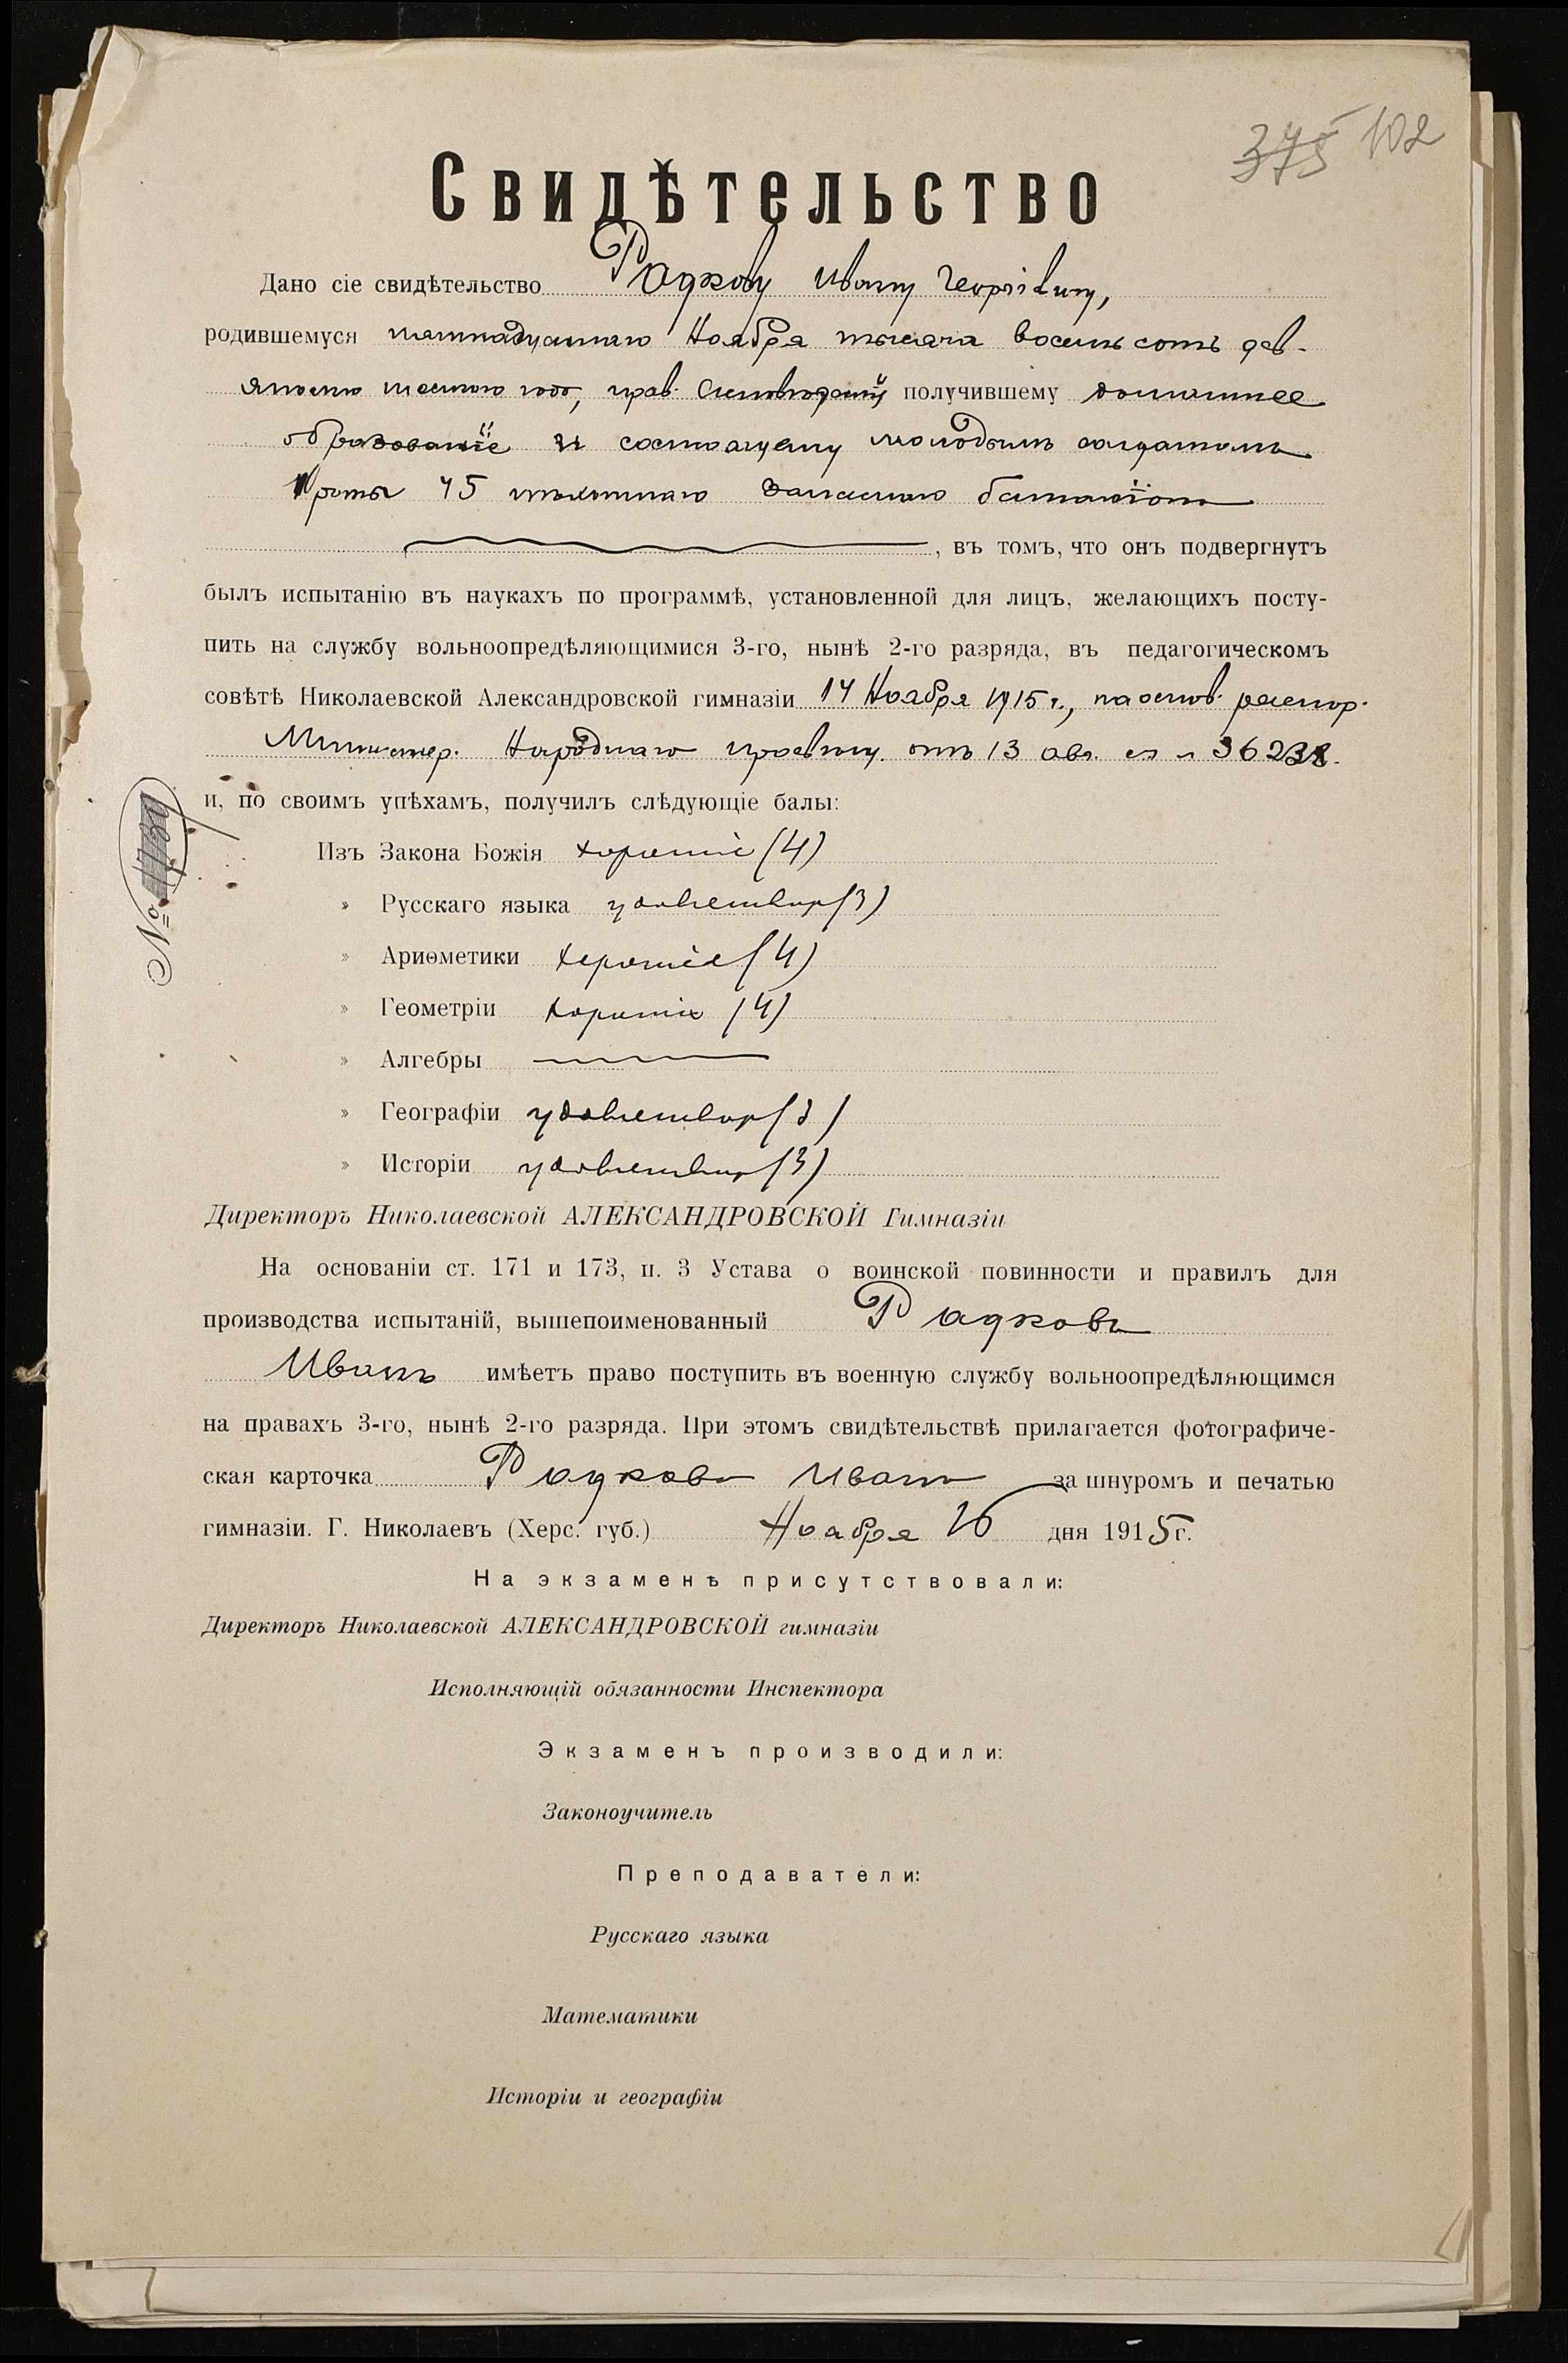 375 102
Свидѣтельство
Дано сіе свидѣтельство Радкову Ивану Георгіевичу,
родившемуся пятнадцатаго Ноября тысяча восемьсотъ дев-
яносто шестого года, прав. исповѣданія получившему домашнее
образованіе и состоящему молодымъ солдатомъ
роты 45 пѣхотнаго запаснаго баталіона
, въ томъ, что онъ подвергнутъ
былъ испытанію въ наукахъ по программѣ, установленной для лицъ, желающихъ посту-
пить на службу вольноопредѣляющимися 3-го, нынѣ 2-го разряда, въ педагогическомъ
совѣтѣ Николаевской Александровской гимназіи 14 Ноября 1915 г., на основ. распор.
Министер. Народнаго просвѣщ. отъ 13 авг. за №
и, по своимъ упѣхамъ, получилъ слѣдующіе балы:
№
Изъ Закона Божія хорошіе (4)
» Русскаго языка удовлетвор (3)
» Ариѳметики хорошіе (4)
» Геометріи хорошіе (4)
» Алгебры
» Географіи удовлетвор (3)
» Исторіи удовлетвор (3)
Директоръ Николаевской АЛЕКСАНДРОВСКОЙ Гимназіи
На основаніи ст. 171 и 173, п. 3 Устава о воинской повинности и правилъ для
производства испытаній, вышепоименованный Радковъ
Иванъ имѣетъ право поступить въ военную службу вольноопредѣляющимся
на правахъ 3-го, нынѣ 2-го разряда. При этомъ свидѣтельствѣ прилагается фотографиче-
ская карточка Радкова Ивана за шнуромъ и печатью
гимназіи. Г. Николаевъ (Херс. губ.) Ноября 16 дня 1915 г.
На экзаменѣ присутствовали:
Директоръ Николаевской АЛЕКСАНДРОВСКОЙ гимназіи
Исполняющій обязанности Инспектора
Экзаменъ производили:
Законоучитель
Преподаватели:
Русскаго языка
Математики
Исторіи и географіи